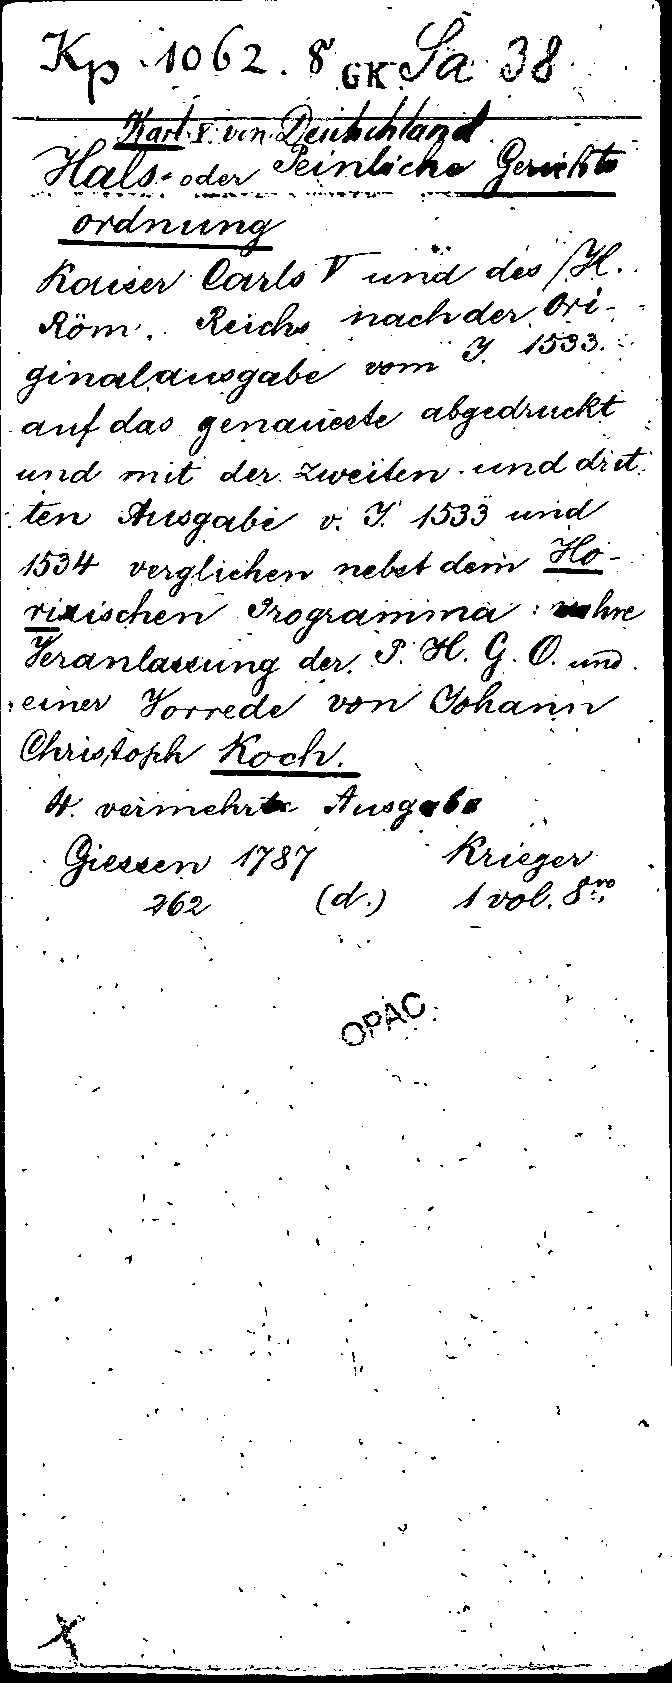 Kp 1062.8 GK Sa 38
Karl V. von Deutschland
Hals- oder Peinliche Gerichts
ordnung
Kaiser Carls V und des H.
Röm. Reichs nach der Ori-
ginalausgabe vom J. 1533.
auf das genaueste abgedruckt
und mit der zweiten und drit
ten Ausgabe v. J. 1533 und
1534 verglichen nebst dem Ho-
rixischen Programma: wahre
Veranlassung der P. H. G. O. und
einer Vorrede von Johann
Christoph Koch.
4. vermehrte Ausgabe
Giessen 1787 Krieger
262 (d.) 1 vol. 8vo
OPAC